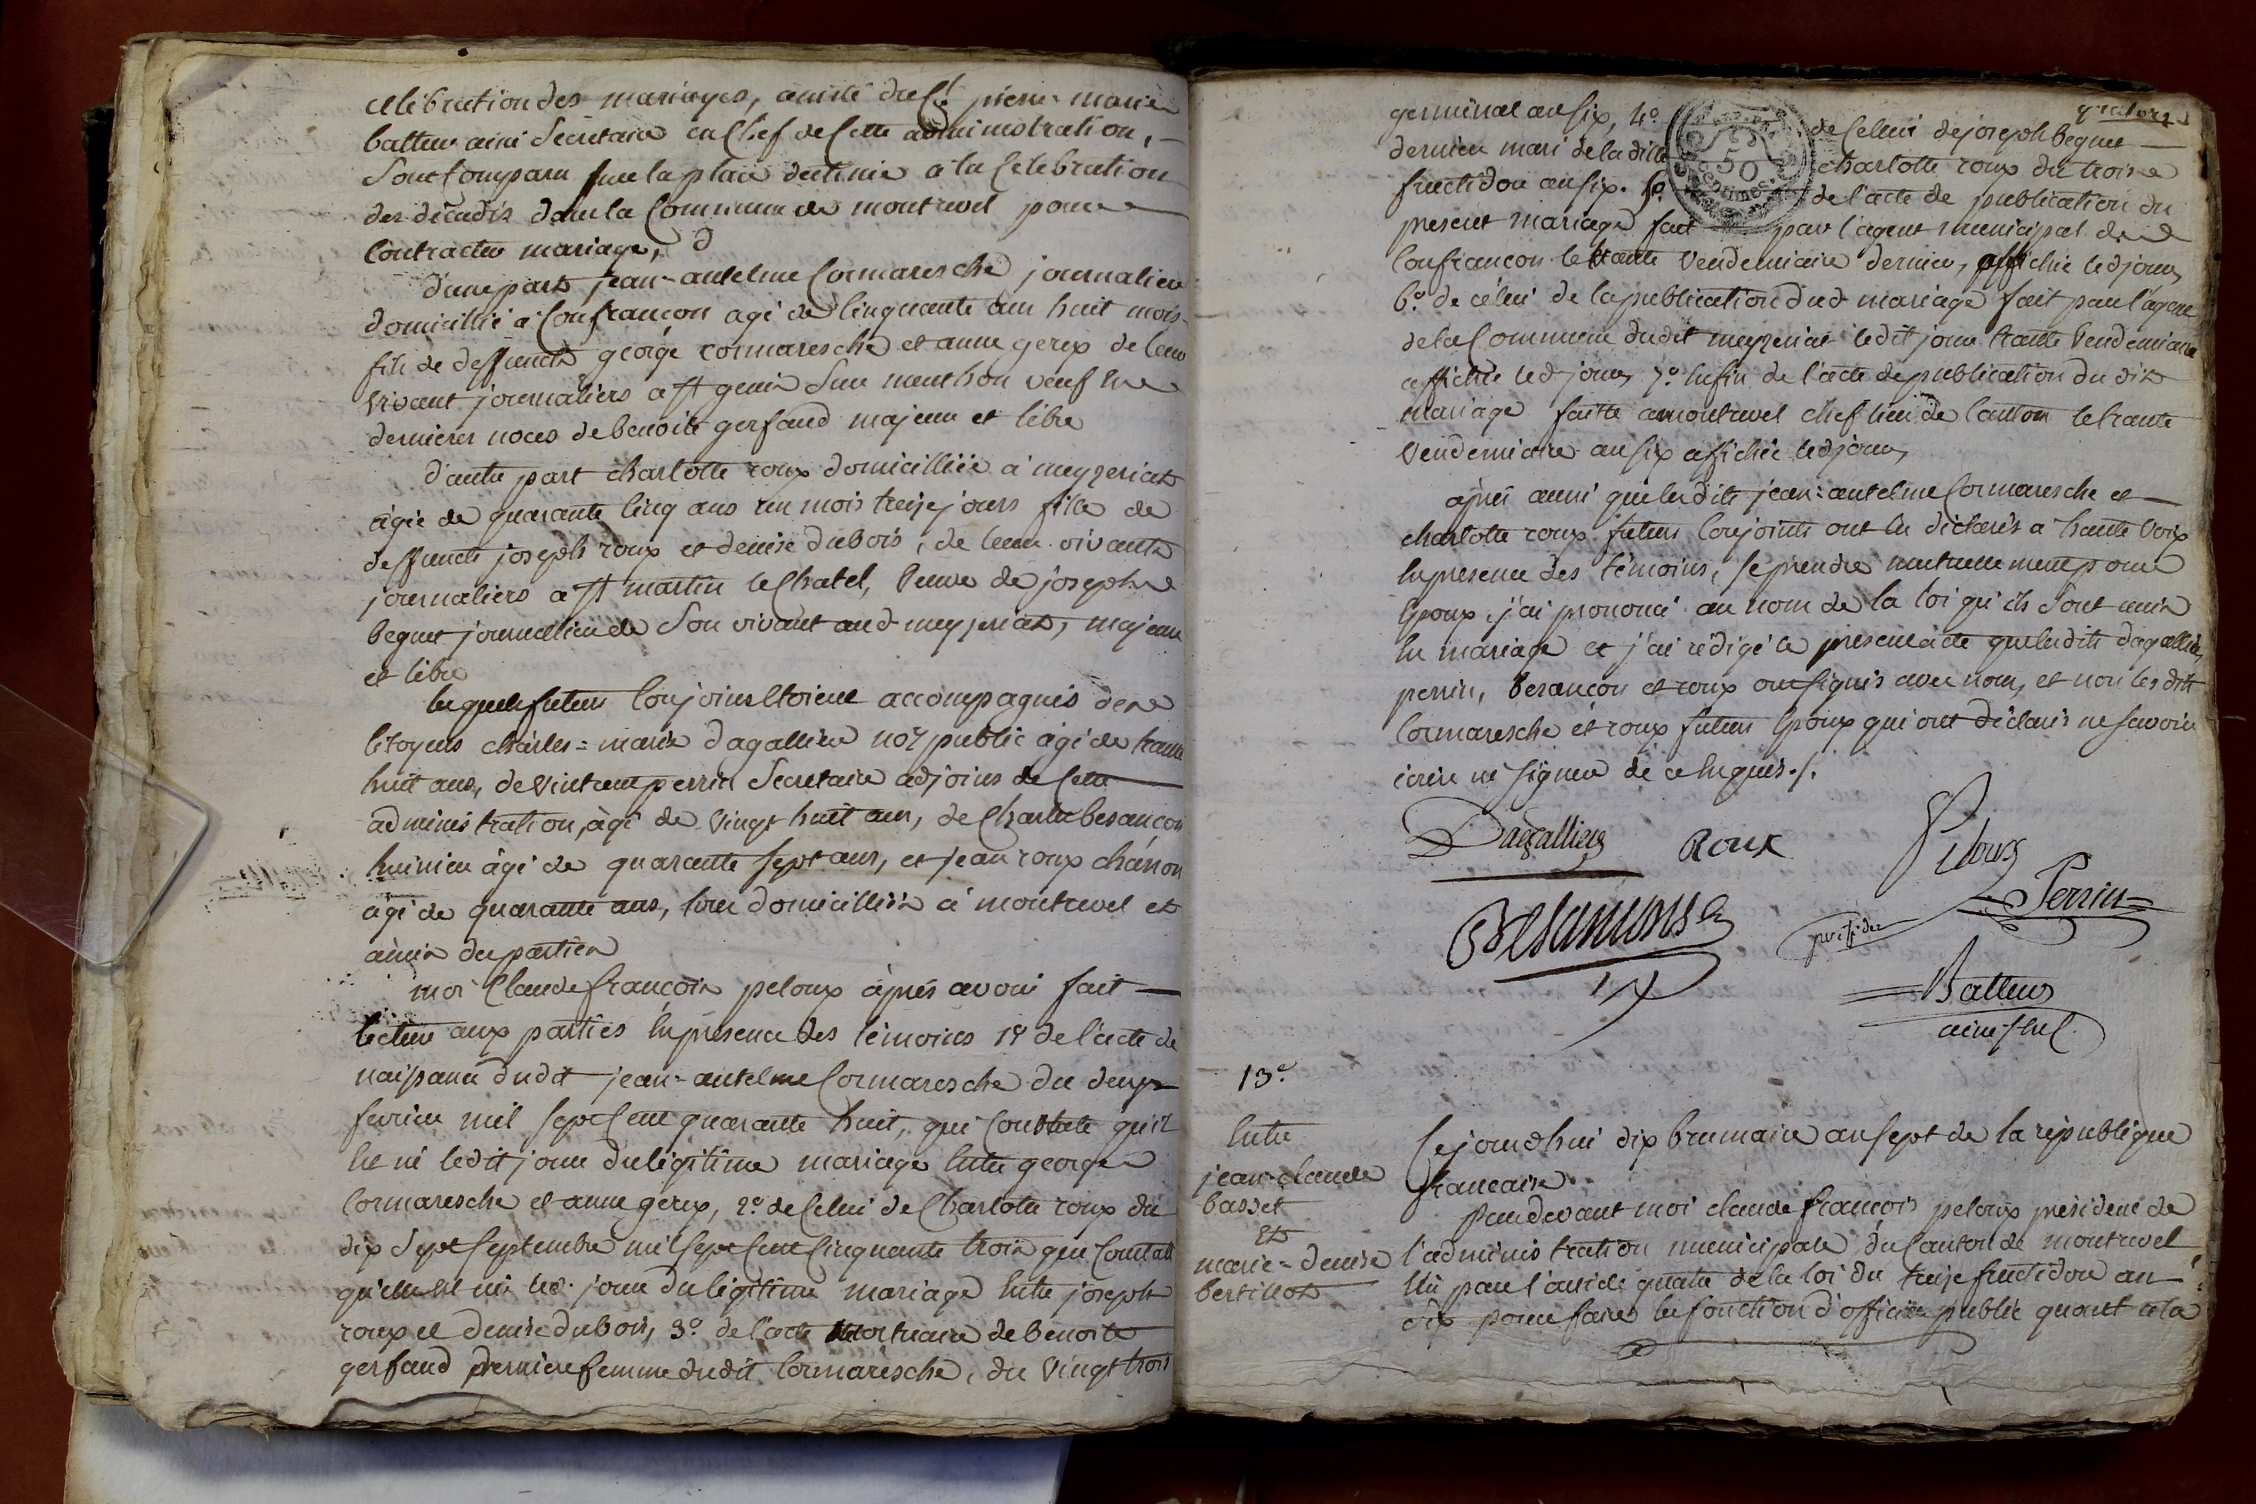 celebration des mariages, assisté du Cit pierre marie
batteur ainé Secretaire en Chef de Cette administration,
Sont Comparu sur la place destinée a la Celebration
des décadis dans la Commune de montrevel pour
Contracter mariage,
d'une part jean-antelme Cormaresche journalier
domicillié a Confrançon agé de Cinquante ans huit mois
fils de deffuncts george cormaresche et anne gerex de leur
vivant journaliers a St genis Sur menthon veuf En
dernieres noces de benoite gerfaud majeur et libre
d'autre part charlotte roux domicilliée a meyzeriat
agée de quarante Cinq ans un mois treize jours fille de
deffuncts joseph roux et denise dubois, de leur vivants
journaliers a St martin le Chatel, Veuve de joseph
beguet journalier de Son vivant aud meyzeriat, majeure
et libre
lesquels futurs Conjoins Etoient accompagnés de
Citoyens charles=marie dagallier nore public agé de trante
huit ans, de Vincent perrin Secretaire adjoins de Cette
administration, agé de vingt huit ans, de Charles besançon
huissier âgé de quarante Sept ans, et jean roux chârron
agé de quarante ans, tous domicilliés à montrevel et
amis des parties
moi Claude françois peloux âprés avoir fait
lecture aux parties En présence des témoins 1º de l'acte de
naissance dudit jean-antelme Cormaresche du deux
fevrier mil Sept Cent quarante huit, qui Constate qu'il
Est né ledit jour du légitime mariage Entre george
Cormaresche et anne gerex, 2º de Celui de Charlotte roux du
dix Sept Septembre mil Sept Cent Cinquante trois qui Constate
qu'elle Est née led. jour du légitime mariage Entre joseph
roux et denise dubois, 3º de l'acte Mortuaire de benoite
gerfaud derniere femme dudit Cormaresche, du vingt trois
quatorze
germinal an Six, 4º de Celui de joseph beguet
dernier mari de la ditte charlotte roux du trois
fructidor an Six. 5º de l'acte de publication du
present mariage fait par l'agent municipal de
Confrançon le trante Vendemiaire dernier, affichié led jour,
6º de célui de la publication dud mariage fait par l'agent
de la Commune dudit meyzeriat ledit jour trante Vendemiaire
affichié led jour, 7º Enfin de l'acte de publication du dit
mariage faitte a montrevel chef lieu de Canton le trante
Vendemiaire an Six affichée led jour,
âprés aussi que lesdits jean=antelme Cormaresche et
charlotte roux futurs Conjoints ont Eu déclarés a haute Voix
En presence des témoins, se prendre mutuellement pour
Epoux, j'ai prononcé au nom de la loi qu'ils Sont unis
En mariage et j'ai rédigé le présent acte que lesdits dagallier,
perrin, besançon et roux ont signés avec nous, et non les dits
Cormaresche et roux futurs Epoux qui ont déclarés ne savoir
écrire ni signer de ce Enquis./.
Dagallier
Roux
Peloux
president
Perrin
Besançons
Batteur
ainé
50
13e
Entre
jean-claude
basset
Et
marie=denise
bertillot
Cejourdhui dix brumaire an Sept de la république
francaise.
Pardevant moi claude françois peloux président de
l'administration municipale du Canton de montrevel
Elû par l'article quatre de la loi du treize fructidor an
Six pour faire les fonction d'officier public quant a la